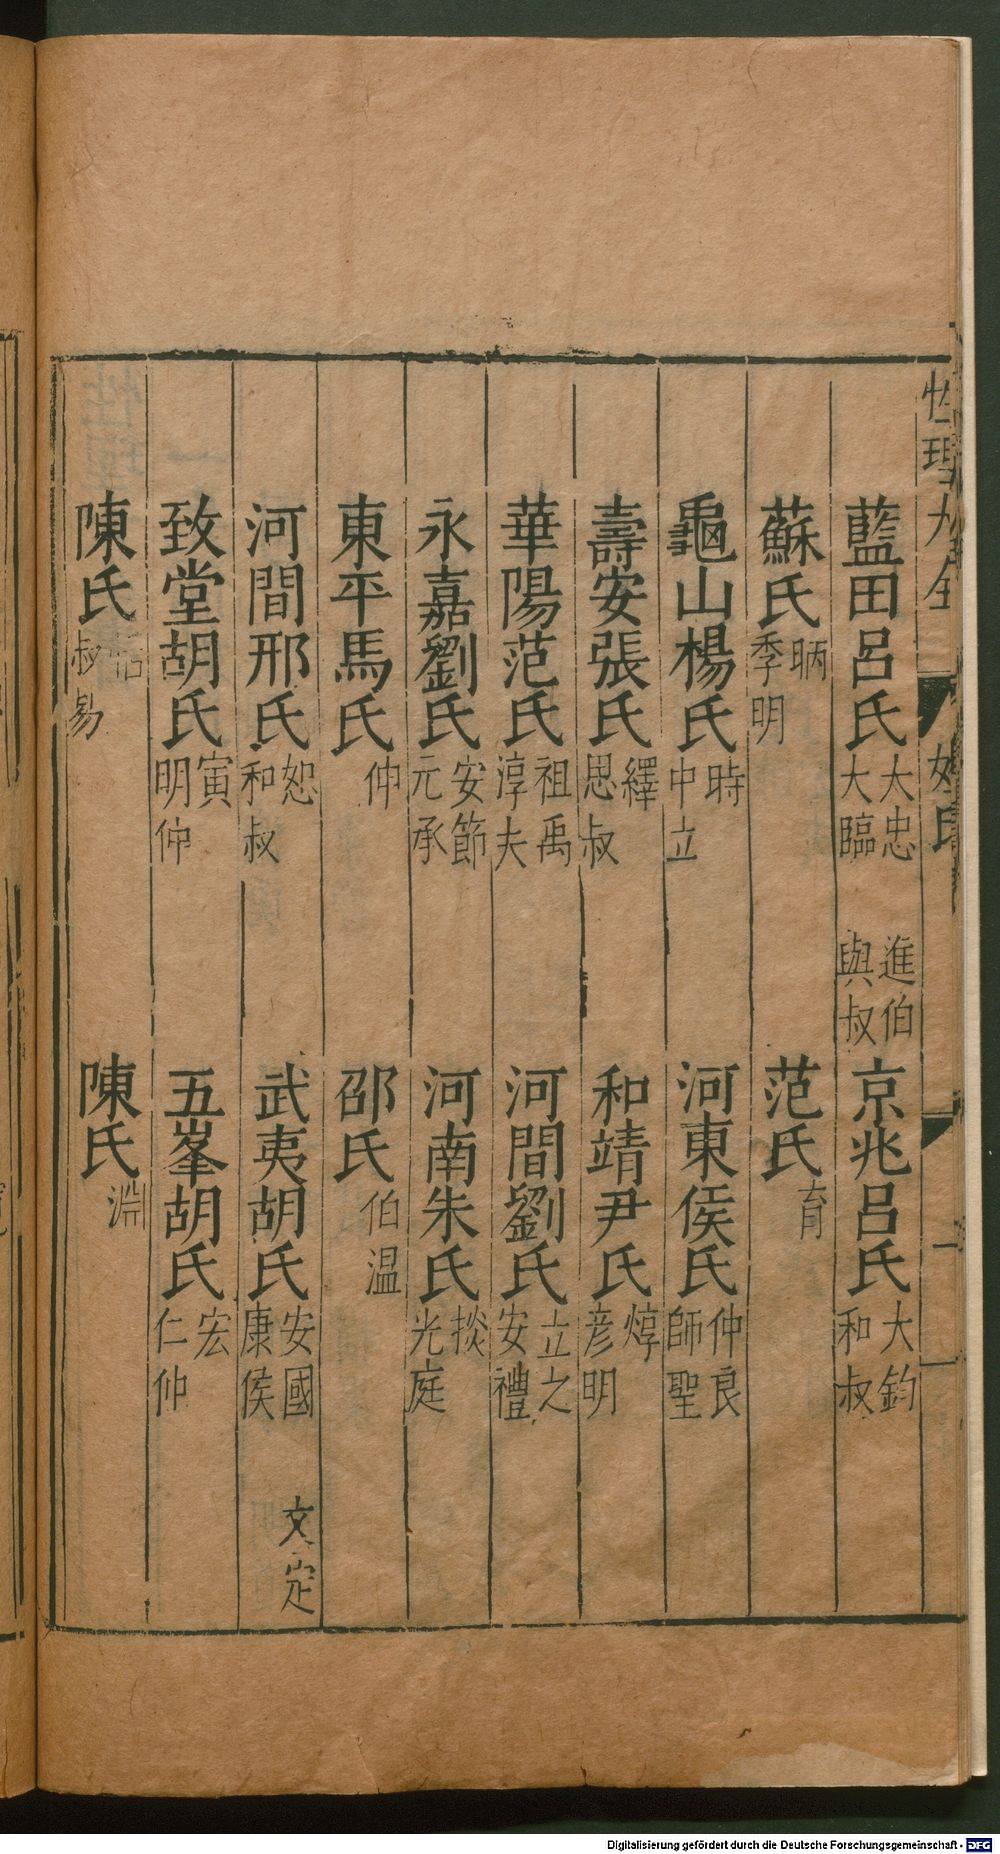 性理大全 姓氏 一
藍田呂氏 大忠 進伯 大臨 與叔 京兆呂氏 大鈞 和叔
蘇氏 昞 季明 范氏 育
龜山楊氏 時 中立 河東侯氏 仲良 師聖
壽安張氏 繹 思叔 和靖尹氏 焞 彥明
華陽范氏 祖禹 淳夫 河間劉氏 立之 安禮
永嘉劉氏 安節 元承 河南朱氏 掞 光庭
東平馬氏 伸 邵氏 伯温
河間邢氏 恕 和叔 武夷胡氏 安國 康侯 文定
致堂胡氏 寅 明仲 五峯胡氏 宏 仁仲
陳氏 叔易 陳氏 淵
Digitalisierung gefördert durch die Deutsche Forschungsgemeinschaft - DFG